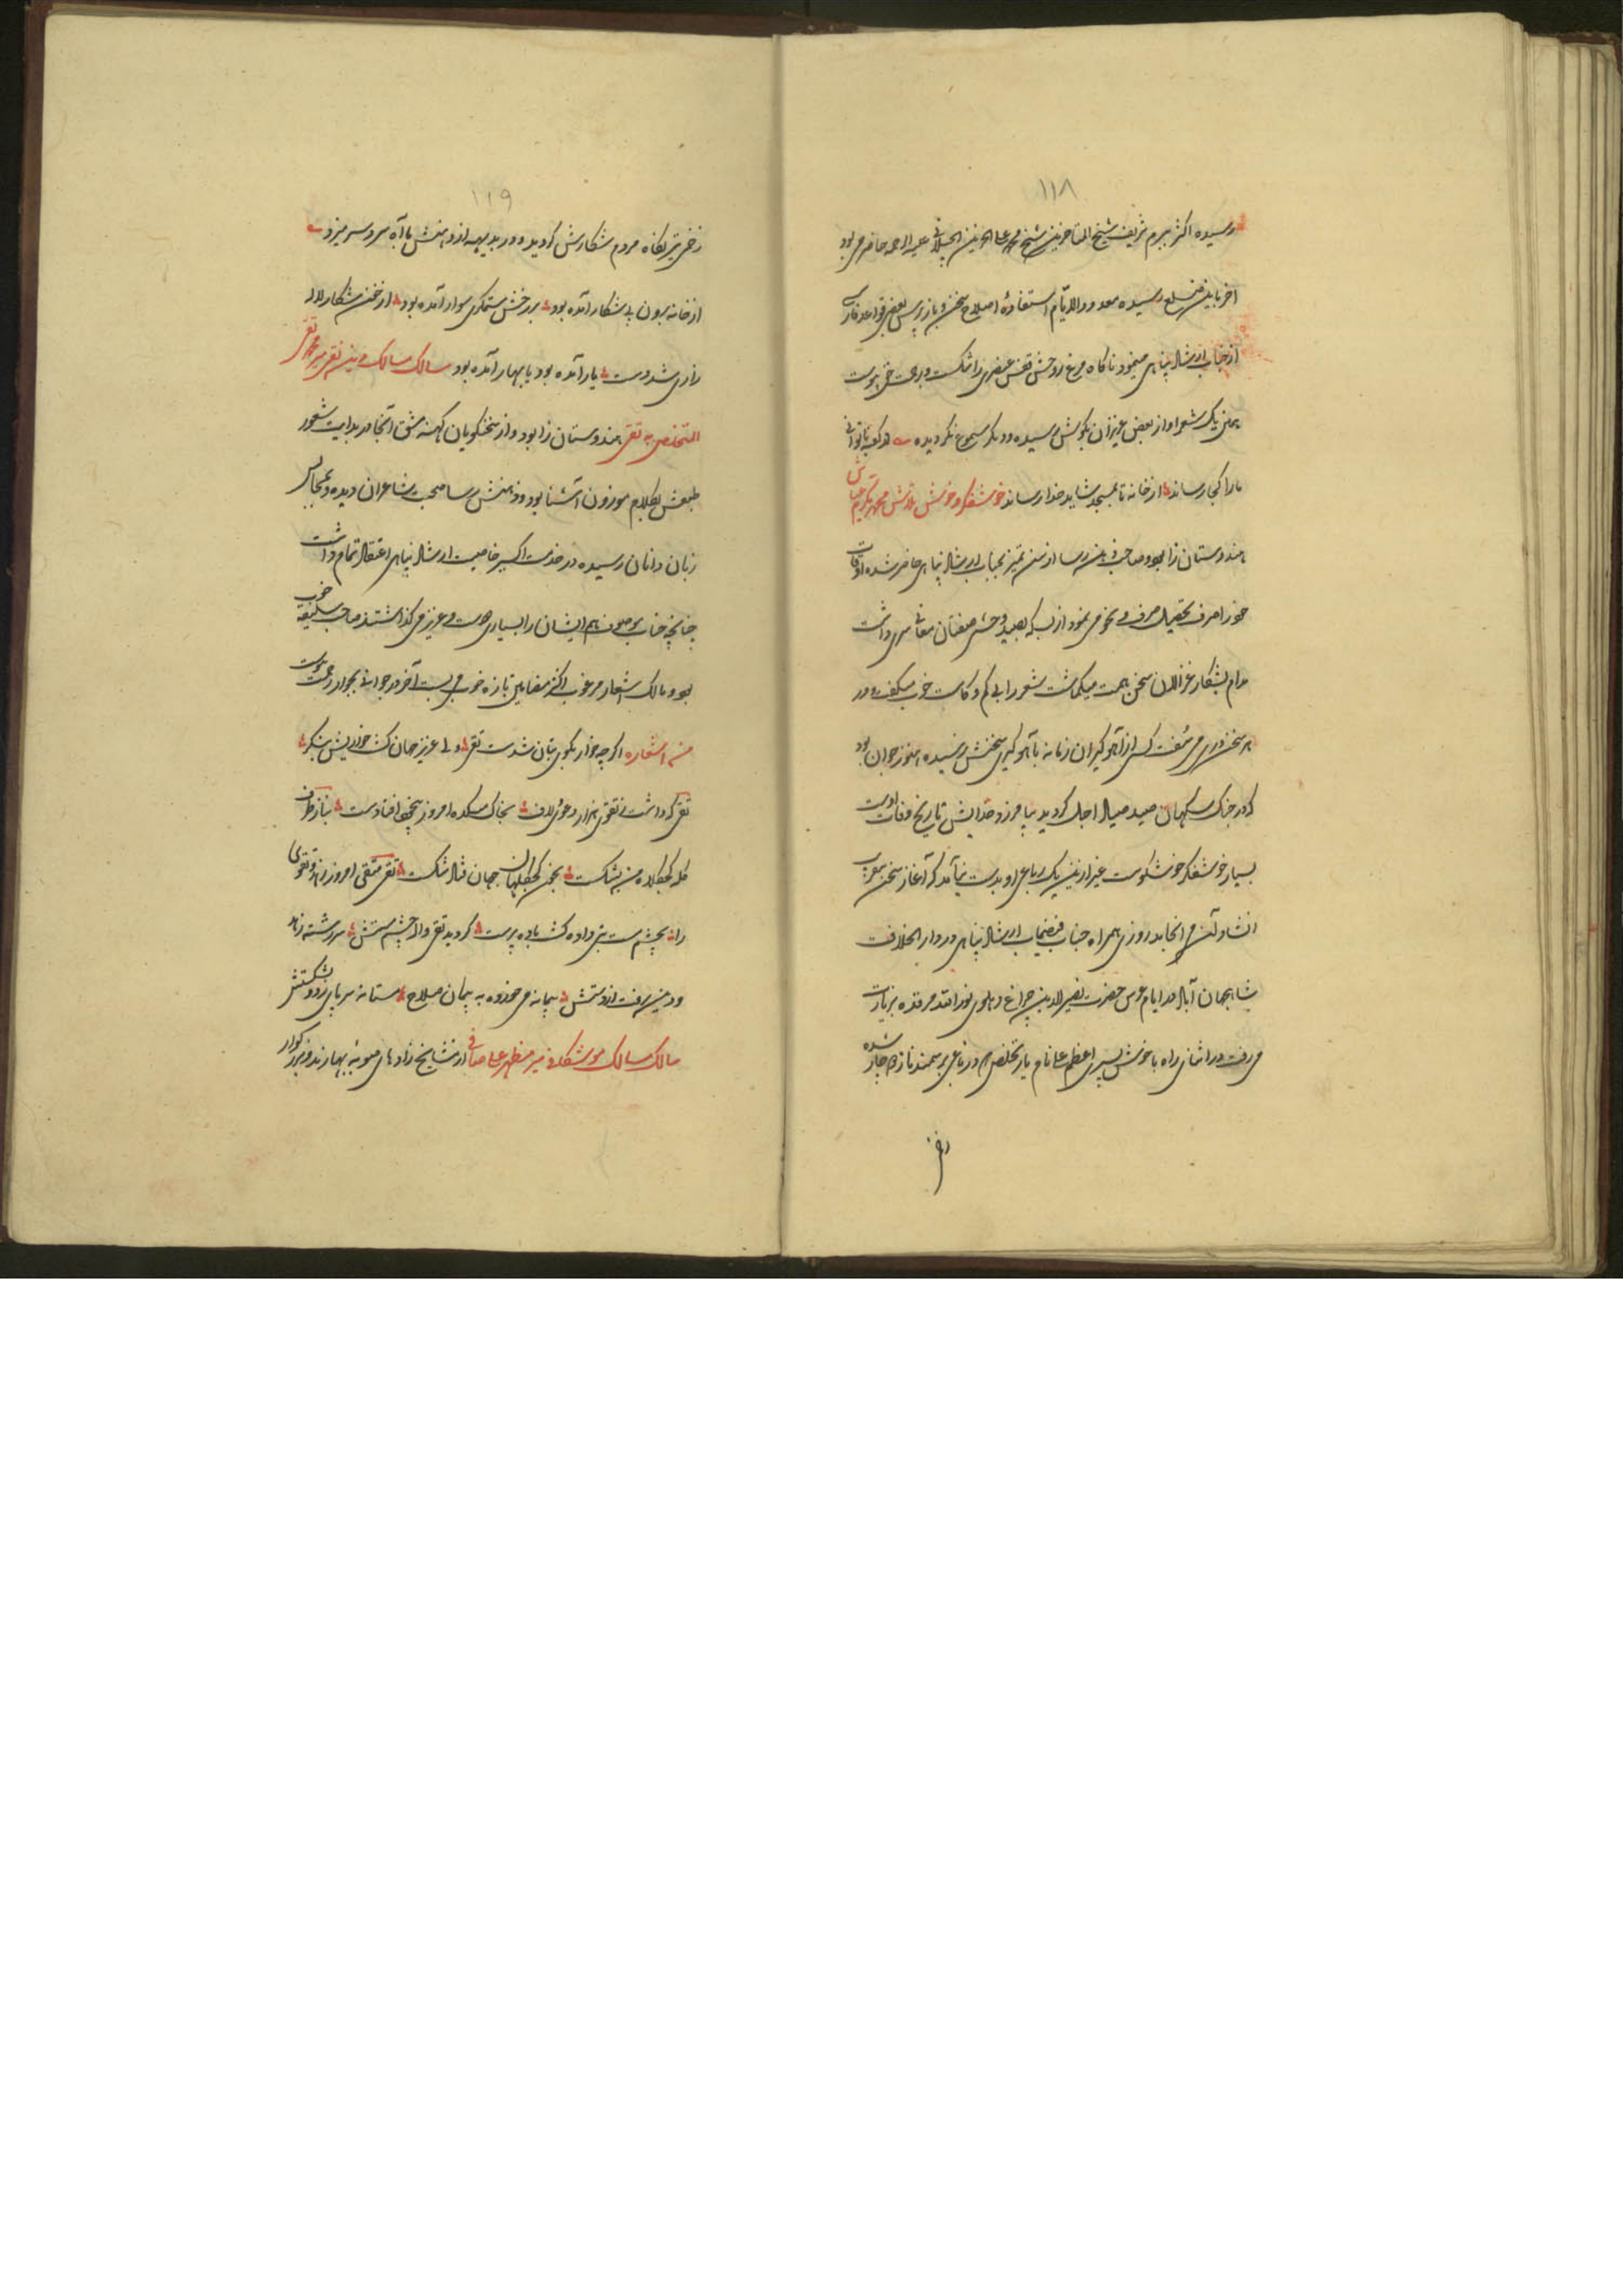 ۱۱۸
رسیده اکثر ببزم شریف شیخ المتاخرین شیخ محمد علی الحزین الجیلانی علیه الرحمه حاضر می بود
اخر باین ضلع رسیده معدود الایام استفاده اصلاح سخن و باز پرس بعض قواعد فارسی
از جناب ارشاد پناهی مینمود ناکاه مرغ روحش قفس عنصری را شکست و برحمت حق پیوست
همین یک شعر او از بعض عزیزان بکوش رسیده و دیکر مسموع نکردیده
ما را کجا رساند از خانه تا بمسجد شاید خدا رساند خوشفکر و خوش تلاش محمد تکریم
هندوستان زا بود صاحب ذهن رسا از سن تمیز بجناب ارشاد پناهی حاضر شده اوقات
خود را صرف تحصیل صرف و نحو می نمود از بس که بصید وحشی صفتان معانی سری داشت
مدام بشکار غزالان سخن همت میکماشت شعر را بی کم و کاست خوب میکفت و در
هر سخن دری می سفت کسی از آهو کیران زمانه با آهو کیری سخنش نرسیده هنوز جوان بود
که در جنک سکهان صید صیاد اجل کردید بیامرزد خدایش تاریخ وفات اوست
بسیار خوشفکر خوشکوست غیر ازین یک رباعی او بدست نیامد که آغاز سخن بتقریب
انشاد آن می انجامد روزی همراه جناب فیضمآب ارشاد پناهی در دار الخلافت
شاهجهان آباد در ایام عرس حضرت نصیر الدین چراغ دهلوی نور الله مرقده بزیارت
می رفت در اثنای راه با خوش پسری اعظم علی نام یار تخلص هم در رباعی بر سمند ناز دو چار شده
زخمی
۱۱۹
زخمی تیر نکاه مردم شکارش کردید و در بدیهه از ذهنش با آه سرد سر میزد
از خانه برون پی شکار آمده بود بر رخش ستمکری سوار آمده بود از خون شکار لاله
زاری شد دست یار آمده بود یا بهار آمده بود سالک مسالک
المتخلص به تقی هندوستان زا بود و از سخنکویان کهنه مشق آنجا در بدایت شعور
طبعش بکلام موزون آشنا بود و ذهنش رسا صحبت شاعران دیده و بمجالس
زبان دانان رسیده در خدمت اکسیر خاصیت ارشاد پناهی اعتقاد تمام داشت
چنانچه جناب موصوف هم ایشان را بسیار دوست و عزیز می کذاشتند صاحب سلیقه خوب
بود و مالک اشعار مرغوب اکثر مضامین تازه خوب می بست آخر در جوانی بجوار رحمت پیوست
من اشعاره اکر چه خوار بکوی بتان شدست تقی ولی عزیز جهان کشت خواریش بنکر
تقی که داشت ز تقوی هزار دعوی لاف بخاک میکده امروز بیخود افتادست
کله کجکلاه من بشکست بخدا کجکلهان جهان فتاد شکست تقی متقی امروز زهد و تقوی
را بچشم مست بتی داده کشت باده پرست کردید تقی والا چشم مستش سر رشته زهد
و دین برفت از دستش پیمانه می خورده به پیمان صلاح مستانه سر پای زد و بشکستش
سالک مسالک موشکافی میر مظهر علی صافی از مشایخ زادهای صوبه بهارند و بزرکوار